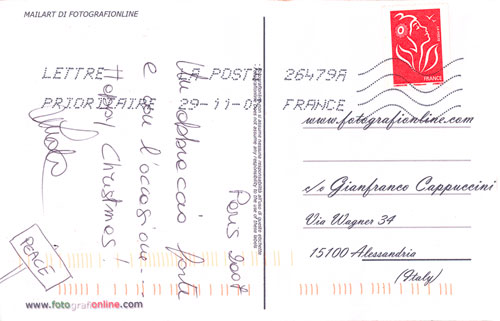 MAILART DI FOTOGRAFIONLINE
LETTRE LA POSTE 26479A
PRIORITAIRE 29-11-0 FRANCE
FRANCE
Paris 2007
Un abbraccio forte
e con l'occasione...
Happy Christmas!
PEACE
www.fotografionline.com
www.fotografionline.com
c/o Gianfranco Cappuccini
Via Wagner 34
15100 Alessandria
(Italy)